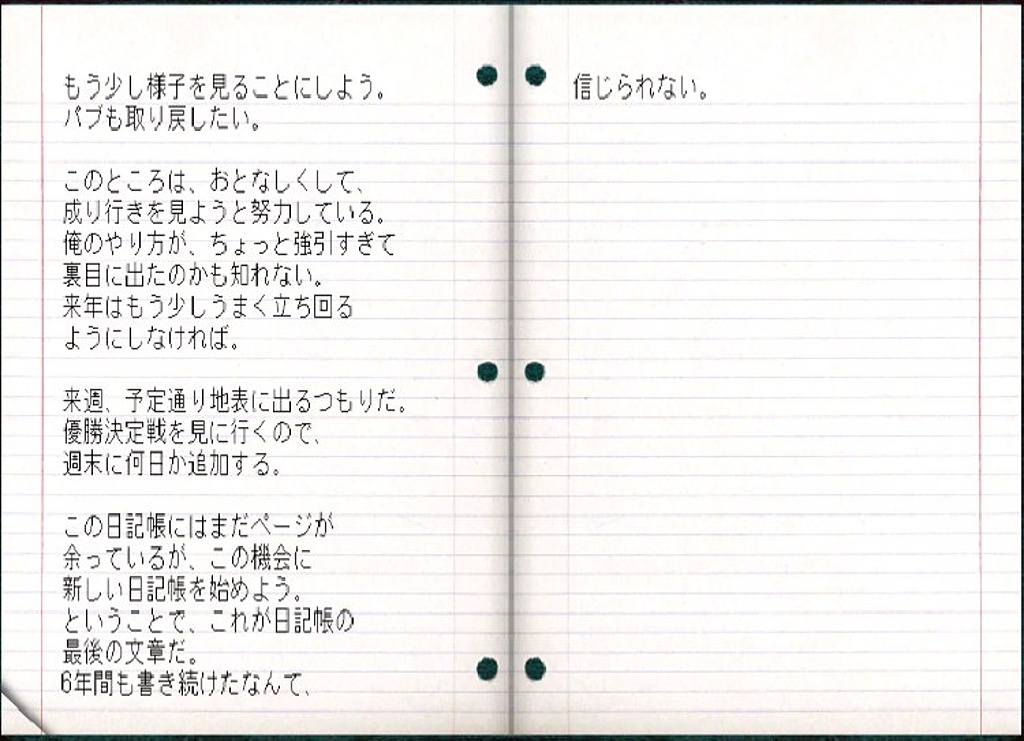 もう少し様子を見ることにしよう。
パブも取り戻したい。
このところは、おとなしくして、
成り行きを見ようと努力している。
俺のやり方が、ちょっと強引すぎて
裏目に出たのかも知れない。
来年はもう少しうまく立ち回る
ようにしなければ。
来週、予定通り地表に出るつもりだ。
優勝決定戦を見に行くので、
週末に何日か追加する。
この日記帳にはまだページが
余っているが、この機会に
新しい日記帳を始めよう。
ということで、これが日記帳の
最後の文章だ。
6年間も書き続けたなんて、
信じられない。